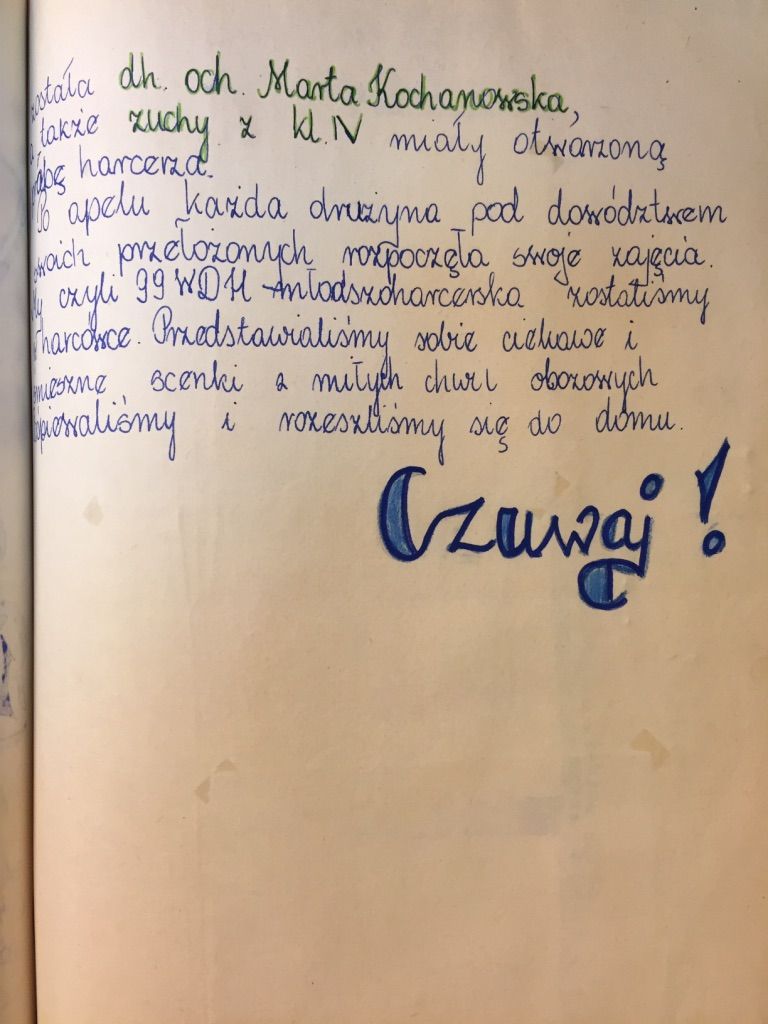 została dh. och. Marta Kochanowska,
a także zuchy z kl. IV miały otwarzoną
próbę harcerza.
Po apelu każda drużyna pod dowództwem
swoich przełożonych rozpoczęła swoje zajęcia.
My czyli 99 WDH młodszoharcerska zostaliśmy
w harcówce. Przedstawialiśmy sobie ciekawe i
śmieszne scenki z miłych chwil obozowych
pośpiewaliśmy i rozeszliśmy się do domu.
Czuwaj!